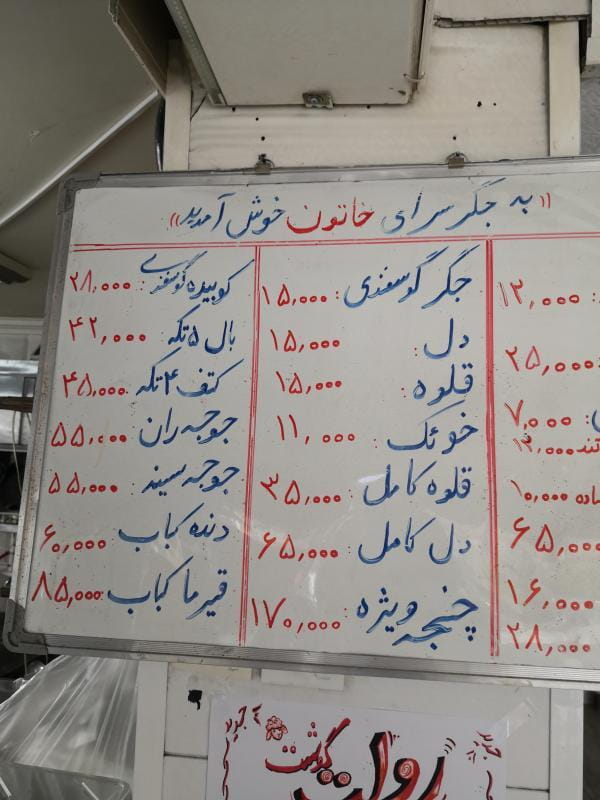 « به جگرسرای خاتون خوش آمدید »
۱۲,۰۰۰
۲۵,۰۰۰
۷,۰۰۰
تند ۱۲,۰۰۰
ساده ۱۰,۰۰۰
۶۵,۰۰۰
۱۶,۰۰۰
۲۸,۰۰۰
جگر گوسفندی : ۱۵,۰۰۰
دل : ۱۵,۰۰۰
قلوه : ۱۵,۰۰۰
خوئک : ۱۱,۰۰۰
قلوه کامل : ۳۵,۰۰۰
دل کامل : ۶۵,۰۰۰
چنجه ویژه : ۱۷۰,۰۰۰
کوبیده گوسفندی : ۲۸,۰۰۰
بال ۵ تکه : ۴۲,۰۰۰
کتف ۴ تکه : ۴۵,۰۰۰
جوجه ران : ۵۵,۰۰۰
جوجه سینه : ۵۵,۰۰۰
دنده کباب ۶۰,۰۰۰
قیرما کباب ۸۵,۰۰۰
گوشت